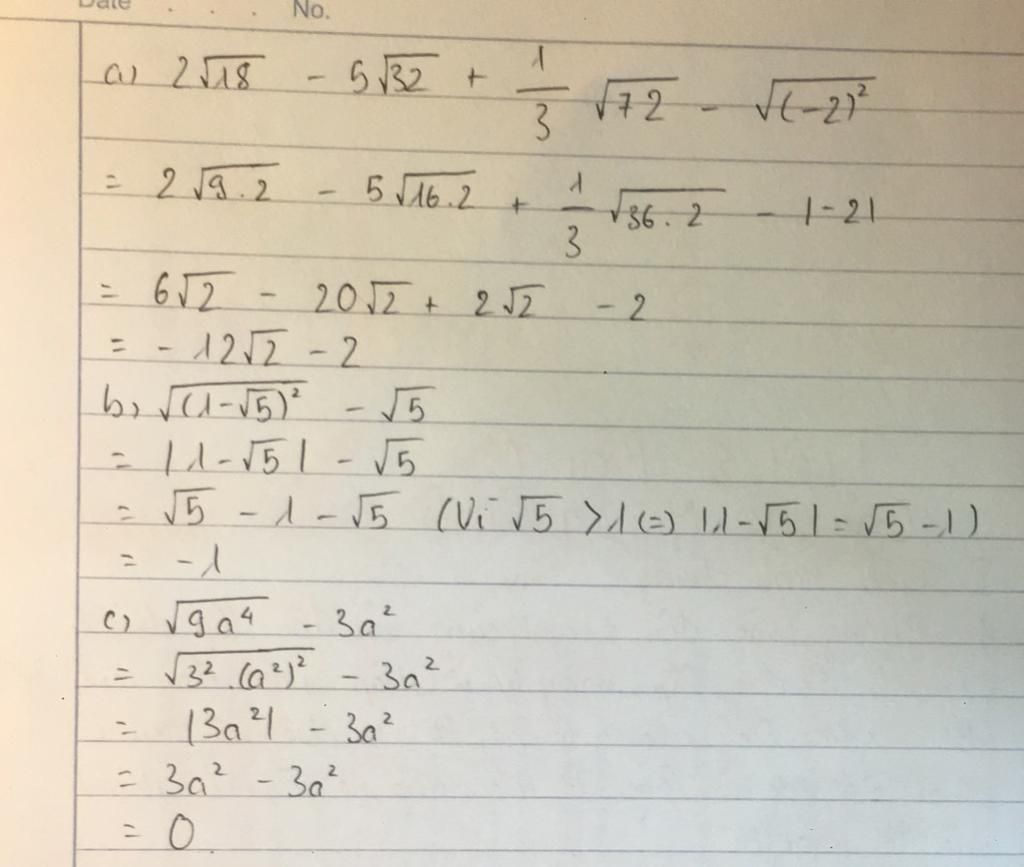 Date . . . No.
a) 2√18 - 5√32 + 1/3 √72 - √(-2)²
= 2√9.2 - 5√16.2 + 1/3 √36.2 - |-2|
= 6√2 - 20√2 + 2√2 - 2
= -12√2 - 2
b) √(1-√5)² - √5
= |1-√5| - √5
= √5 - 1 - √5 (Vì √5 > 1 (=) |1-√5| = √5 - 1)
= -1
c) √9a⁴ - 3a²
= √3².(a²)² - 3a²
= |3a²| - 3a²
= 3a² - 3a²
= 0